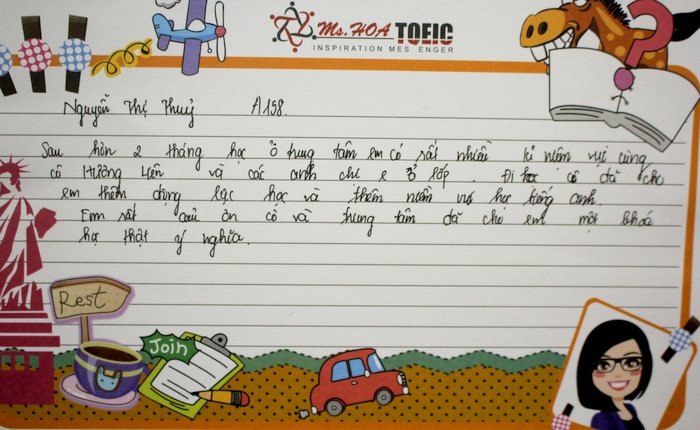 Ms. HOA TOEIC
INSPIRATION MES ENGER
Nguyễn Thị Thuỷ A158.
Sau hơn 2 tháng học ở trung tâm em có rất nhiều kỉ niệm vui cùng
cô Hường Yến và các anh chị e ở lớp. Đi học cô đã cho
em thêm động lực học và thêm niềm vui học tiếng anh.
Em rất cảm ơn cô và trung tâm đã cho em một khoá
học thật ý nghĩa.
Rest
Join